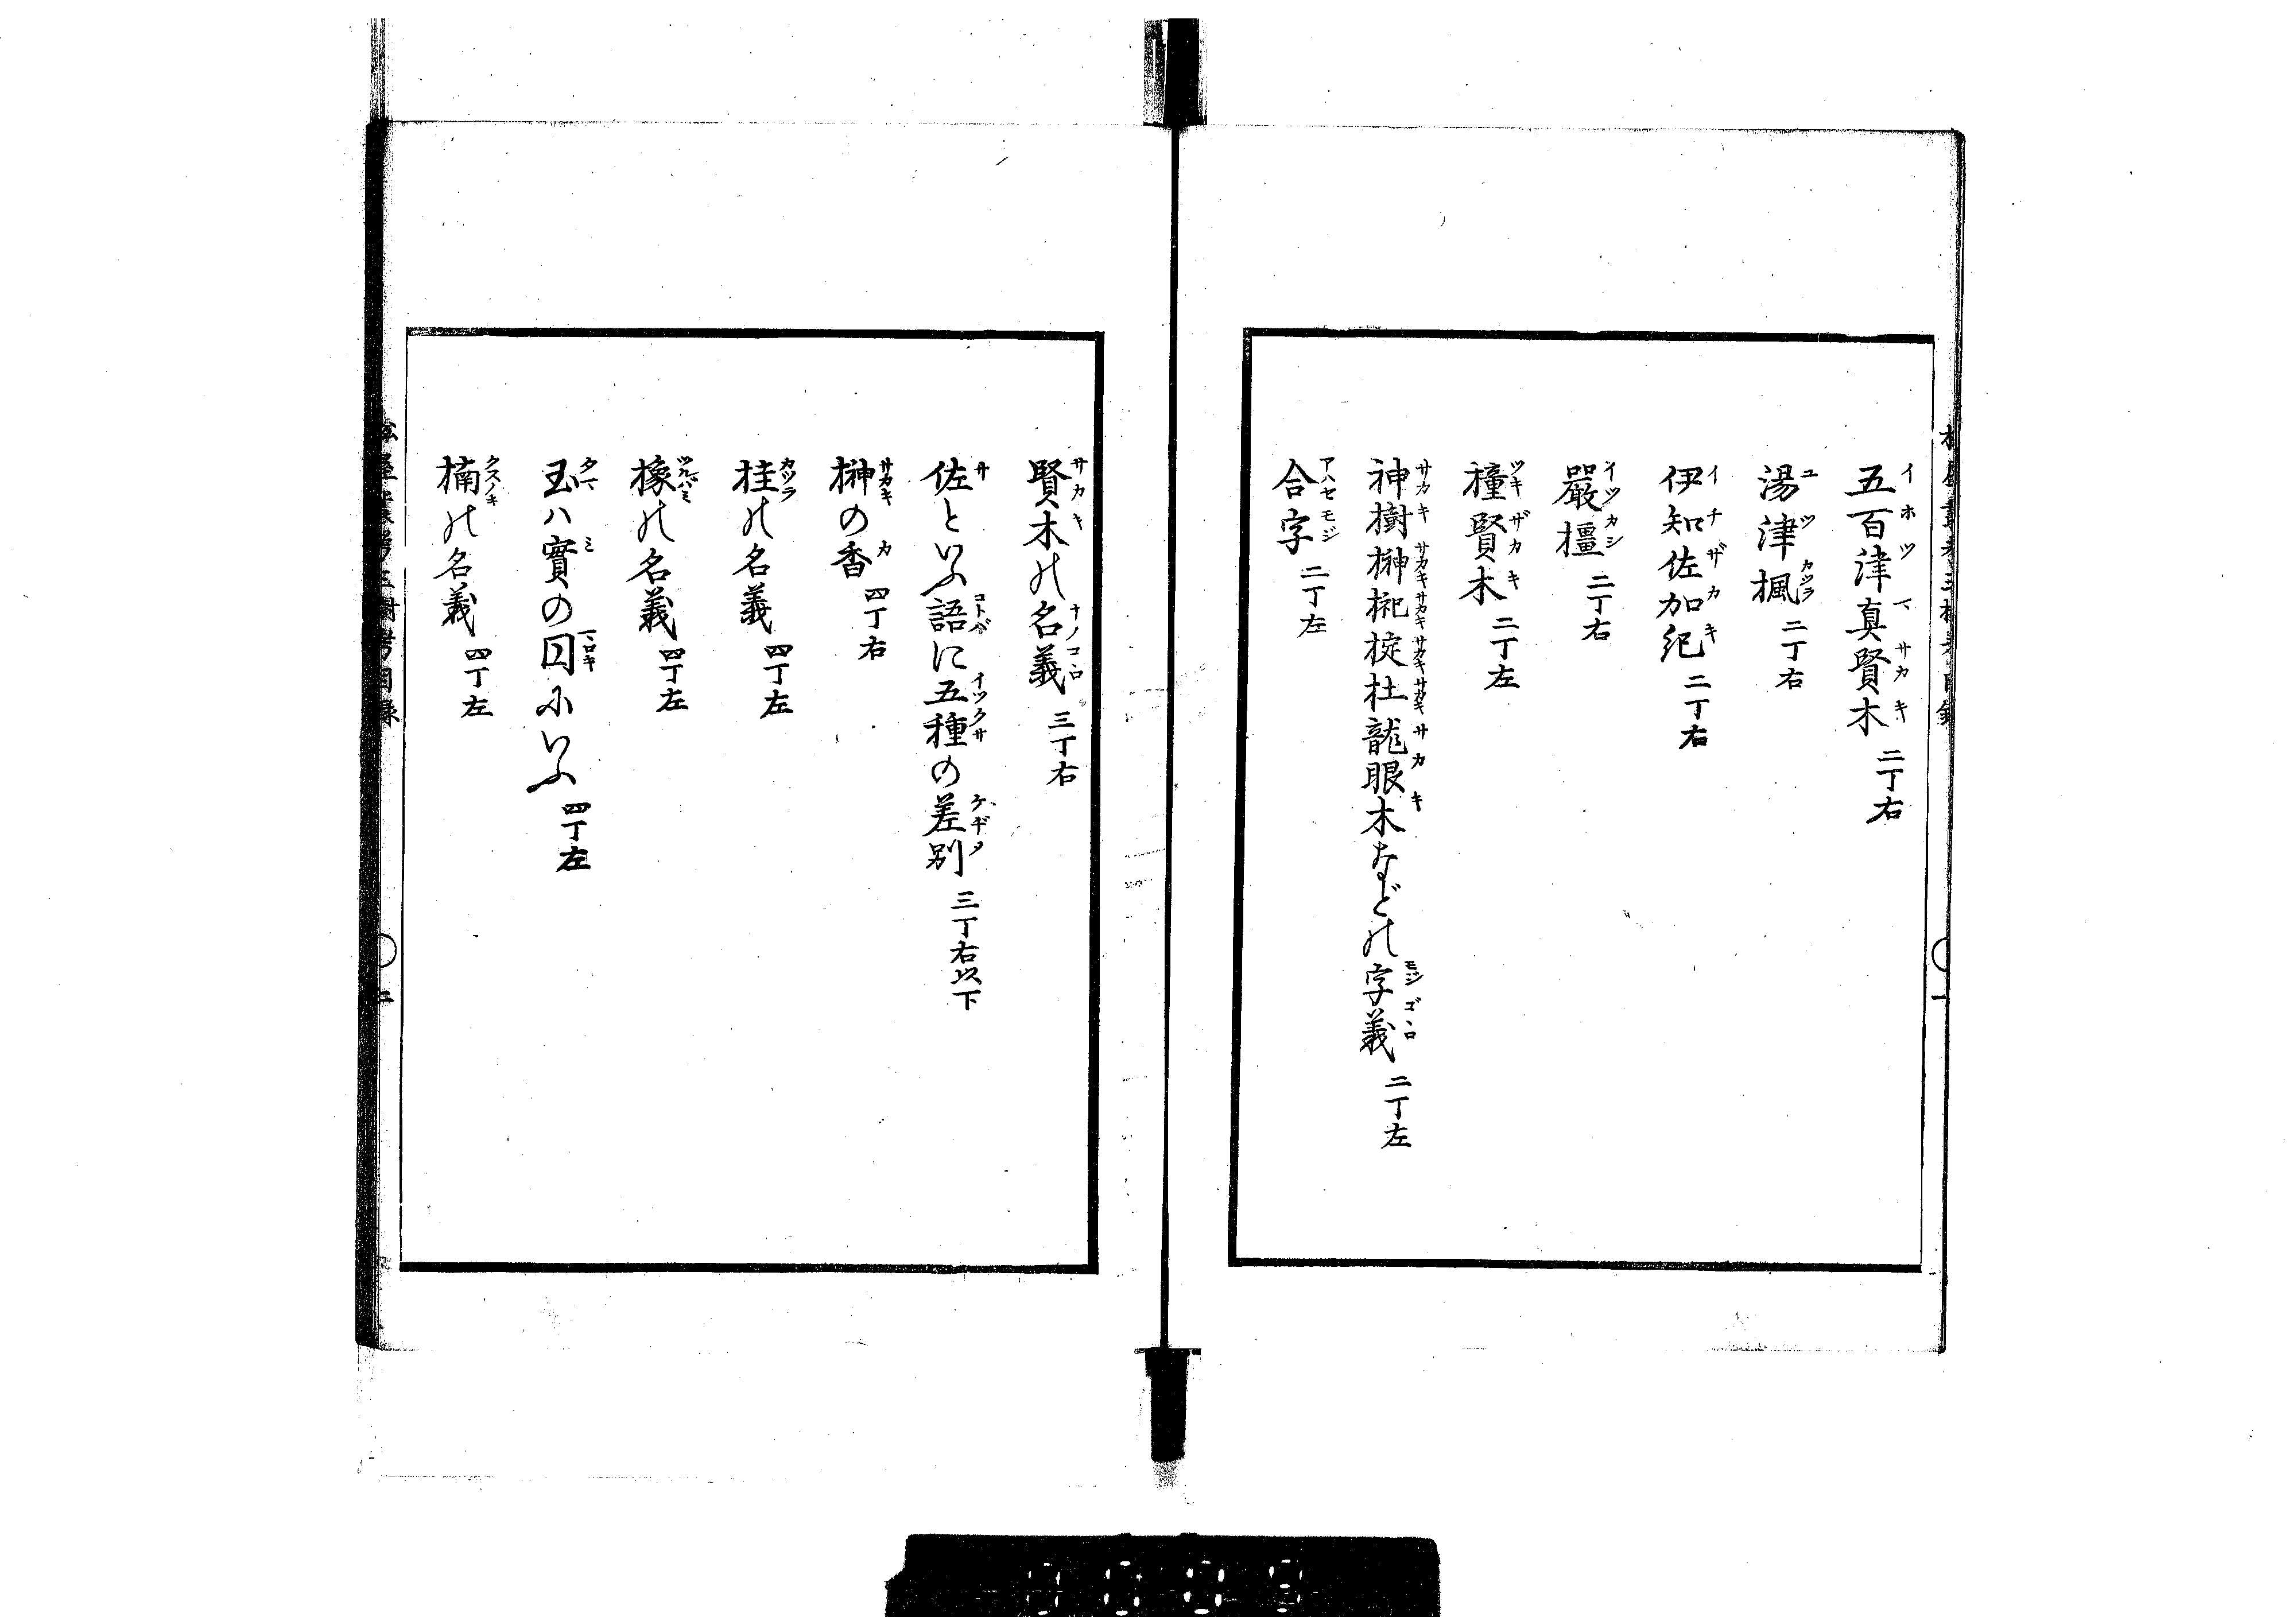 五百津真賢木 二丁右
湯津楓 二丁右
伊知佐加紀 二丁右
嚴橿 二丁右
橦賢木 二丁左
神樹榊杝椗杜龍眼木などの字義 二丁左
合字 二丁左
賢木の名義 三丁右
佐といふ語に五種の差別 三丁右以下
榊の香 四丁右
桂の名義 四丁左
橡の名義 四丁左
玉ハ實の円にいふ 四丁左
楠の名義 四丁左